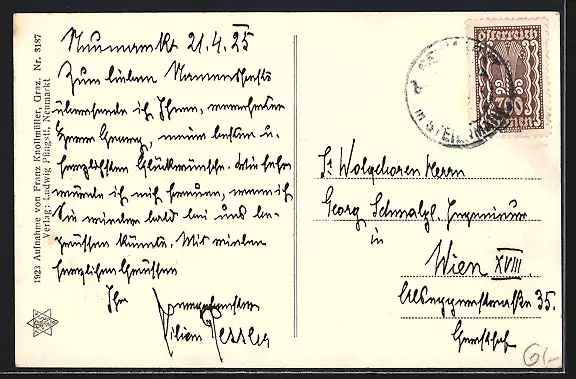 1923 Aufnahme von Franz Knollmüller, Graz. Nr. 3187
Verlag: Ludwig Pfingstl, Neumarkt
Neumarkt 21.4.25
Zum lieben Namensfeste
übersende ich Ihnen, verehrter
Herr Georg, meine besten u.
herzlichsten Glückwünsche. Wie sehr
würde ich mich freuen, wenn ich
Sie wieder bald bei uns be-
grüssen könnte. Mit vielen
herzlichen Grüssen
Ihr
österreich
700
Kronen
in STEIERMARK
Sr. Wolgeboren Herrn
Georg Schmalzl, Ingenieur
in
Wien XVIII.
Alseggerstraße 35.
Gersthof
6/-